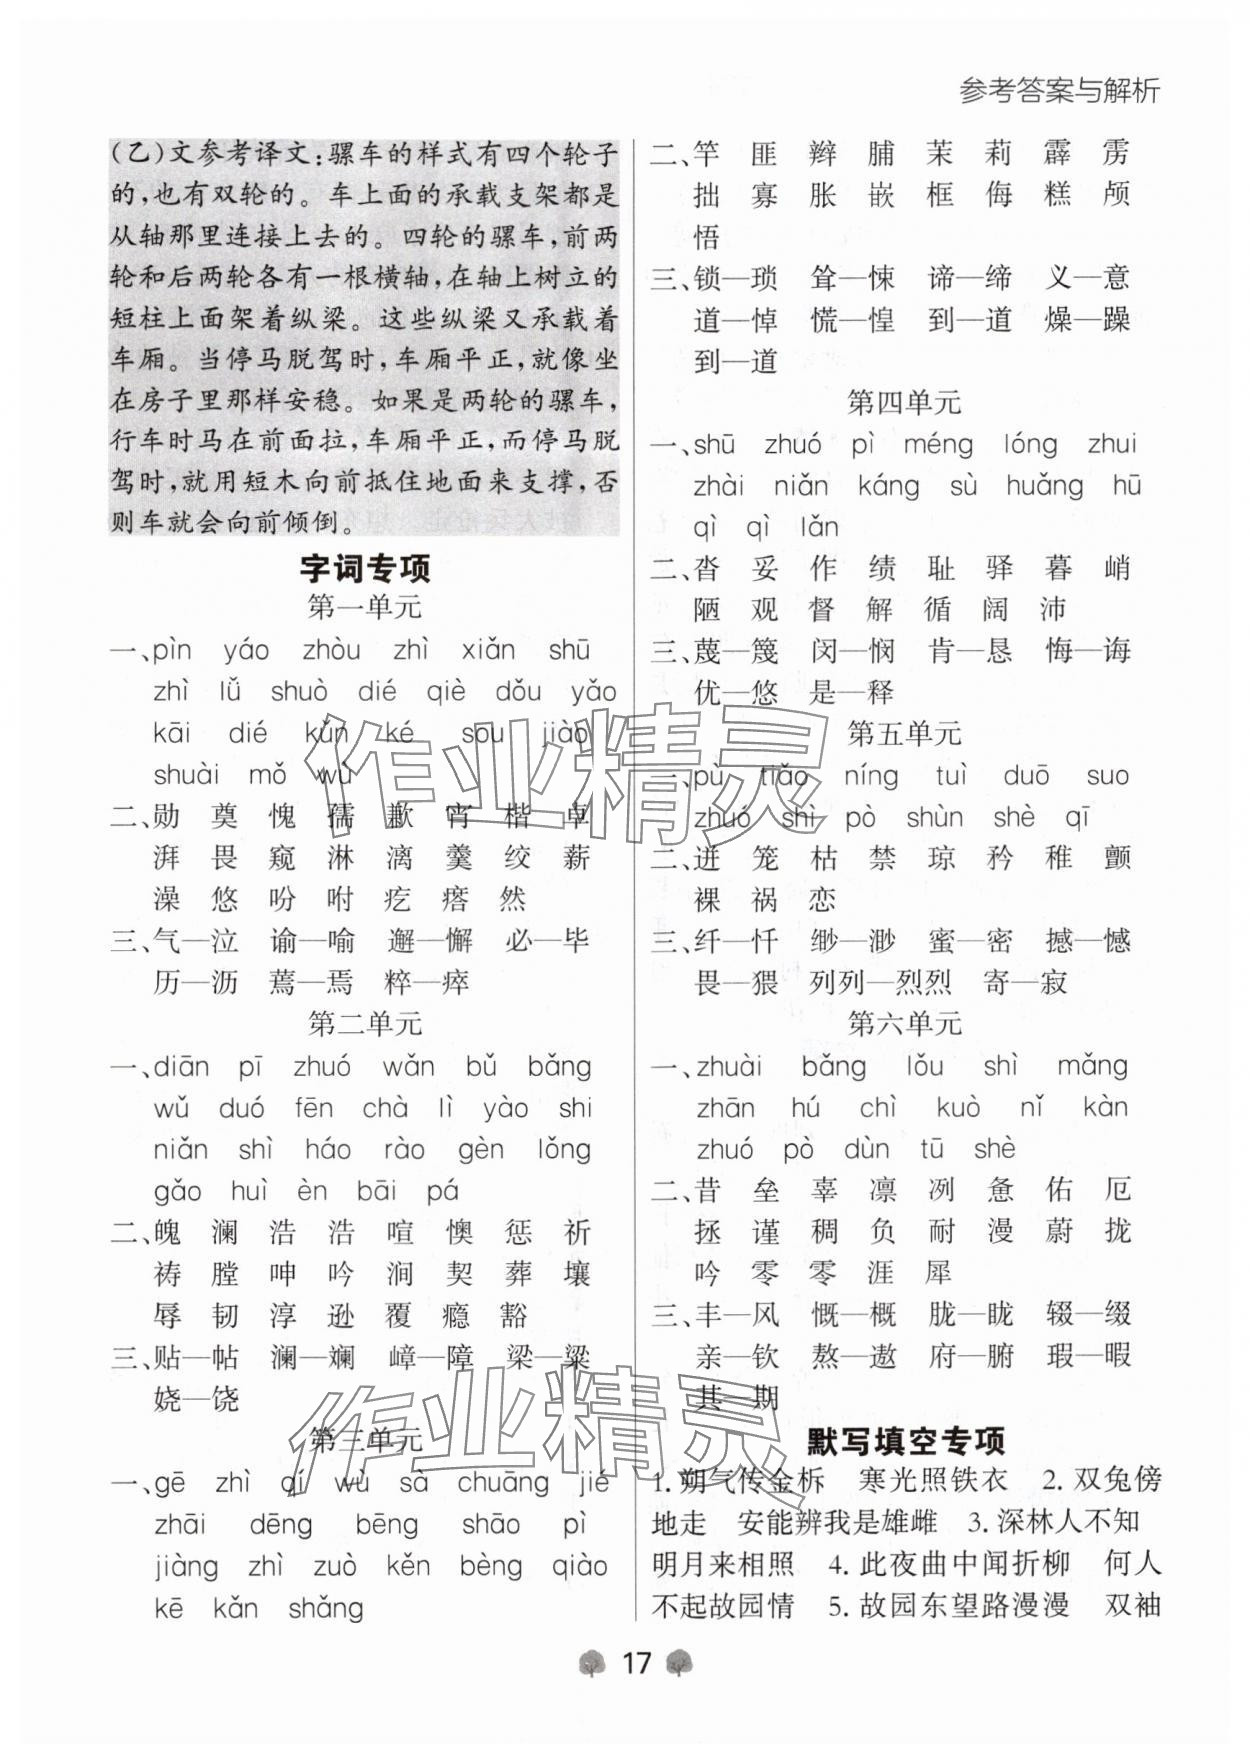 参考答案与解析
(乙)文参考译文:骡车的样式有四个轮子
的,也有双轮的。车上面的承载支架都是
从轴那里连接上去的。四轮的骡车,前两
轮和后两轮各有一根横轴,在轴上树立的
短柱上面架着纵梁。这些纵梁又承载着
车厢。当停马脱驾时,车厢平正,就像坐
在房子里那样安稳。如果是两轮的骡车,
行车时马在前面拉,车厢平正,而停马脱
驾时,就用短木向前抵住地面来支撑,否
则车就会向前倾倒。
字词专项
第一单元
一、pìn yáo zhòu zhì xiǎn shū
zhì lǚ shuò dié qiè dǒu yǎo
kāi dié kǔn ké sou jiào
shuài mǒ wù
二、勋 奠 愧 孺 歉 宵 楷 卓
湃 畏 窥 淋 漓 羹 绞 薪
澡 悠 吩 咐 疙 瘩 然
三、气—泣 谕—喻 邂—懈 必—毕
历—沥 蔫—焉 粹—瘁
第二单元
一、diān pī zhuó wǎn bǔ bǎng
wǔ duó fēn chà lì yào shi
niǎn shì háo rào gèn lǒng
gǎo huì èn bāi pá
二、魄 澜 浩 浩 喧 懊 惩 祈
祷 膛 呻 吟 涧 契 葬 壤
辱 韧 淳 逊 覆 瘾 豁
三、贴—帖 澜—斓 嶂—障 梁—粱
娆—饶
第三单元
一、gē zhì qí wù sà chuāng jié
zhāi dēng bēng shāo pì
jiàng zhì zuò kěn bèng qiào
kē kǎn shǎng
二、竿 匪 辫 脯 茉 莉 霹 雳
拙 寡 胀 嵌 框 侮 糕 颅
悟
三、锁—琐 耸—悚 谛—缔 义—意
道—悼 慌—惶 到—道 燥—躁
到—道
第四单元
一、shū zhuó pì méng lóng zhui
zhài niǎn káng sù huǎng hū
qì qì lǎn
二、沓 妥 作 绩 耻 驿 暮 峭
陋 观 督 解 循 阔 沛
三、蔑—篾 闵—悯 肯—恳 悔—诲
优—悠 是—释
第五单元
一、pù tiǎo níng tuì duō suo
zhuó shì pò shùn shè qī
二、迸 笼 枯 禁 琼 矜 稚 颤
裸 祸 恋
三、纤—忏 缈—渺 蜜—密 撼—憾
畏—猥 列列—烈烈 寄—寂
第六单元
一、zhuài bǎng lǒu shì mǎng
zhān hú chì kuò nǐ kàn
zhuó pò dùn tū shè
二、昔 垒 辜 凛 冽 惫 佑 厄
拯 谨 稠 负 耐 漫 蔚 拢
吟 零 零 涯 犀
三、丰—风 慨—概 胧—眬 辍—缀
亲—钦 熬—遨 府—腑 瑕—暇
其—期
默写填空专项
1.朔气传金柝 寒光照铁衣 2.双兔傍
地走 安能辨我是雄雌 3.深林人不知
明月来相照 4.此夜曲中闻折柳 何人
不起故园情 5.故园东望路漫漫 双袖
17
作业精灵
作业精灵